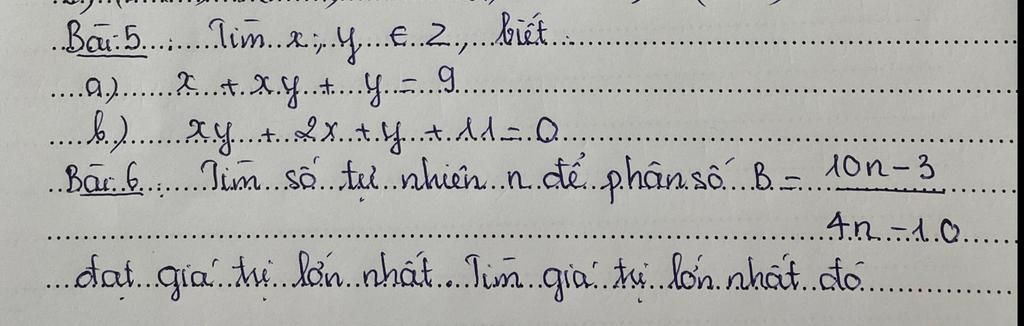 Bài 5: Tìm x; y ∈ Z, biết:
a) x + xy + y = 9
b) xy + 2x + y + 11 = 0
Bài 6: Tìm số tự nhiên n để phân số B = 10n - 3
4n - 10
đạt giá trị lớn nhất. Tìm giá trị lớn nhất đó